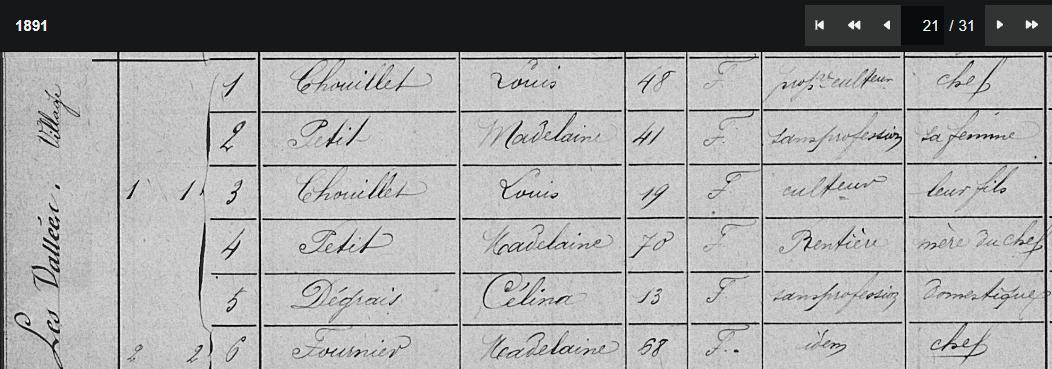 1891
21 / 31
Les Vallées. Village
1 1 1 Chouillet Louis 48 F propre culteur chef
2 Petit Madelaine 41 F. sans profession sa femme
3 Chouillet Louis 19 F culteur leur fils
4 Petit Madelaine 70 F Rentière mère du chef
5 Dégrais Célina 13 F sans profession domestique
2 2 6 Fournier Madelaine 68 F.. idem chef